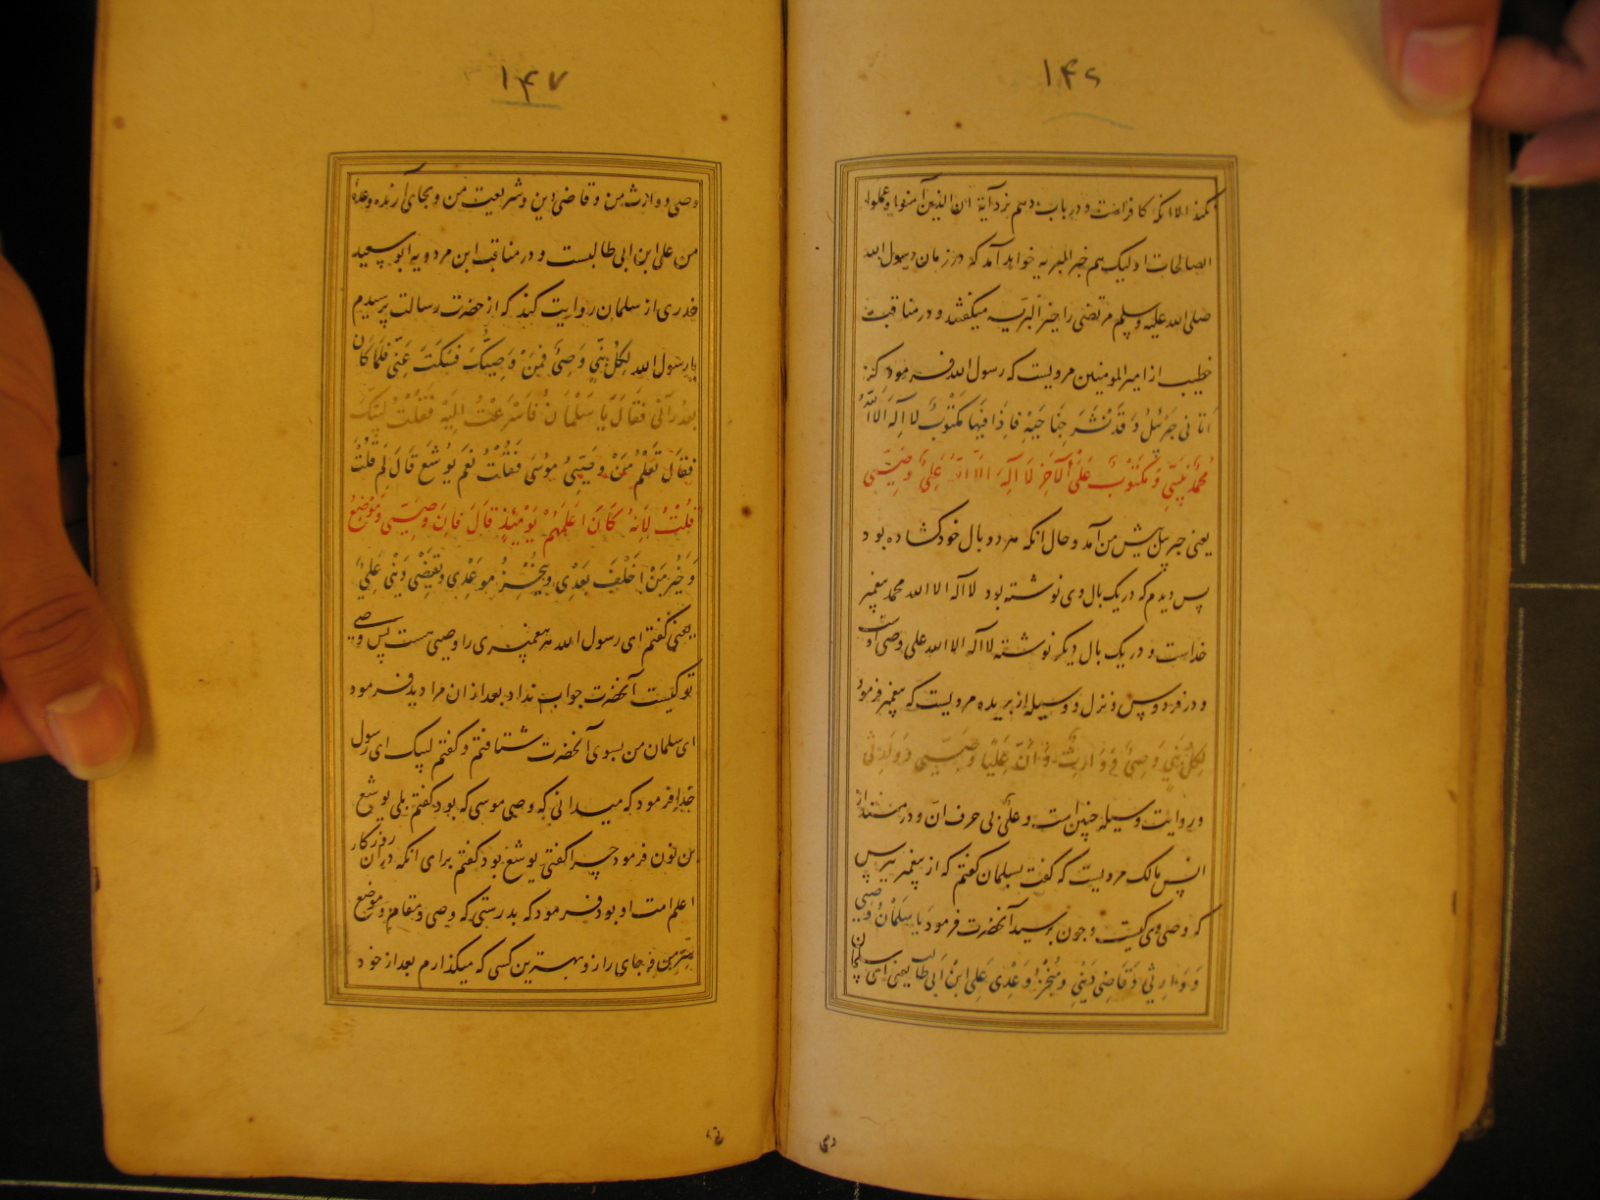 ۱۴۶
نکند الا انکه کافر است و در باب دهم نزد آیة ان الذین آمنوا و عملوا
الصالحات اولیک هم خیر البریه خواهد آمد که در زمان رسول الله
صلی الله علیه و سلم مرتضی را خیر البریه میکفتند و در مناقب
خطیب از امیر المومنین مرویست که رسول الله فرمود که
اَتانی جبرئیل وَ قَد نَشَرَ جَناحَیهِ فاِذا فیها مَکتوبٌ لا اِلهَ الّا اللّهُ
مُحَمَّدٌ نَبیّی وَ مَکتوبٌ عَلَی الآخَرِ لا اِلهَ الّا اللهُ عَلِیٌّ وَصِیّی
یعنی جبرییل پیش من آمد و حال انکه هر دو بال خود کشاده بود
پس دیدم که در یک بال وی نوشته بود لا اله الا الله محمد پیغمبر
خداست و در یک بال دیکر نوشته لا اله الا الله علی وصی اوست
و در فردوس و نزل و وسیله از بریده مرویست که پیغمبر فرمود
لِکُلِّ نَبیٍّ وَصِیٌّ وَ وارِثٌ وَ اَنَّ عَلِیّاً وَصِیّی وَ وارِثی
و روایت وسیله چنین است و علی بی حرف ان و در مسند از
انس مالک مرویست که کفت بسلمان کفتم که از پیغمبر بپرس
که وصی وی کیست و چون پرسید آنحضرت فرمود یا سَلمانُ وَصِیّی
وَ وارِثی وَ قاضی دَینی وَ مُنجِزُ وَعدی عَلیُ ابنُ اَبی طالِب یعنی ای سلمان
وصی
۱۴۷
وصی و وارث من و قاضی دین و شریعت من و بجای آرنده وعدهٔ
من علی ابن ابی طالبست و در مناقب ابن مردویه ابو سعید
خدری از سلمان روایت کند که از حضرت رسالت پرسیدم
یا رسول الله لِکُلِّ نَبیٍّ وَصیٌّ فَمَنْ وَصِیُّکَ فَسَکَتَ عَنّی فَلَمّا کانَ
بعدُ رَآنی فَقالَ یا سَلمانُ فَاَسرَعتُ اِلَیهِ فَقُلتُ لَبَّیکَ
فَقالَ تَعلَمُ مَنْ وَصِیُّ موسَی فَقُلتُ نَعَم یوشَعُ قالَ لِمَ قُلتُ
قُلتُ لِاَنَّهُ کانَ اَعلَمَهُم یَومَئِذٍ قالَ فَاِنَّ وَصِیّی وَ مَوضِعَ
وَ خَیرَ مَنْ اُخلِفُ بَعدی وَ یُنجِزُ مَوعِدی وَ یَقضی دَینی عَلِیٌّ
یعنی کفتم ای رسول الله هر پیغمبری را وصیی هست پس وصی
تو کیست آنحضرت جواب نداد بعد از ان مرا دید فرمود
ای سلمان من بسوی آنحضرت شتافتم و کفتم لبیک ای رسول
خدا فرمود که میدانی که وصی موسی که بود کفتم بلی یوشع
بن نون فرمود چرا کفتی یوشع بود کفتم برای انکه در ان روزکار
اعلم امت او بود فرمود که بدرستی که وصی و مقام و موضع
سر من و جای راز و بهترین کسی که میکذارم بعد از خود